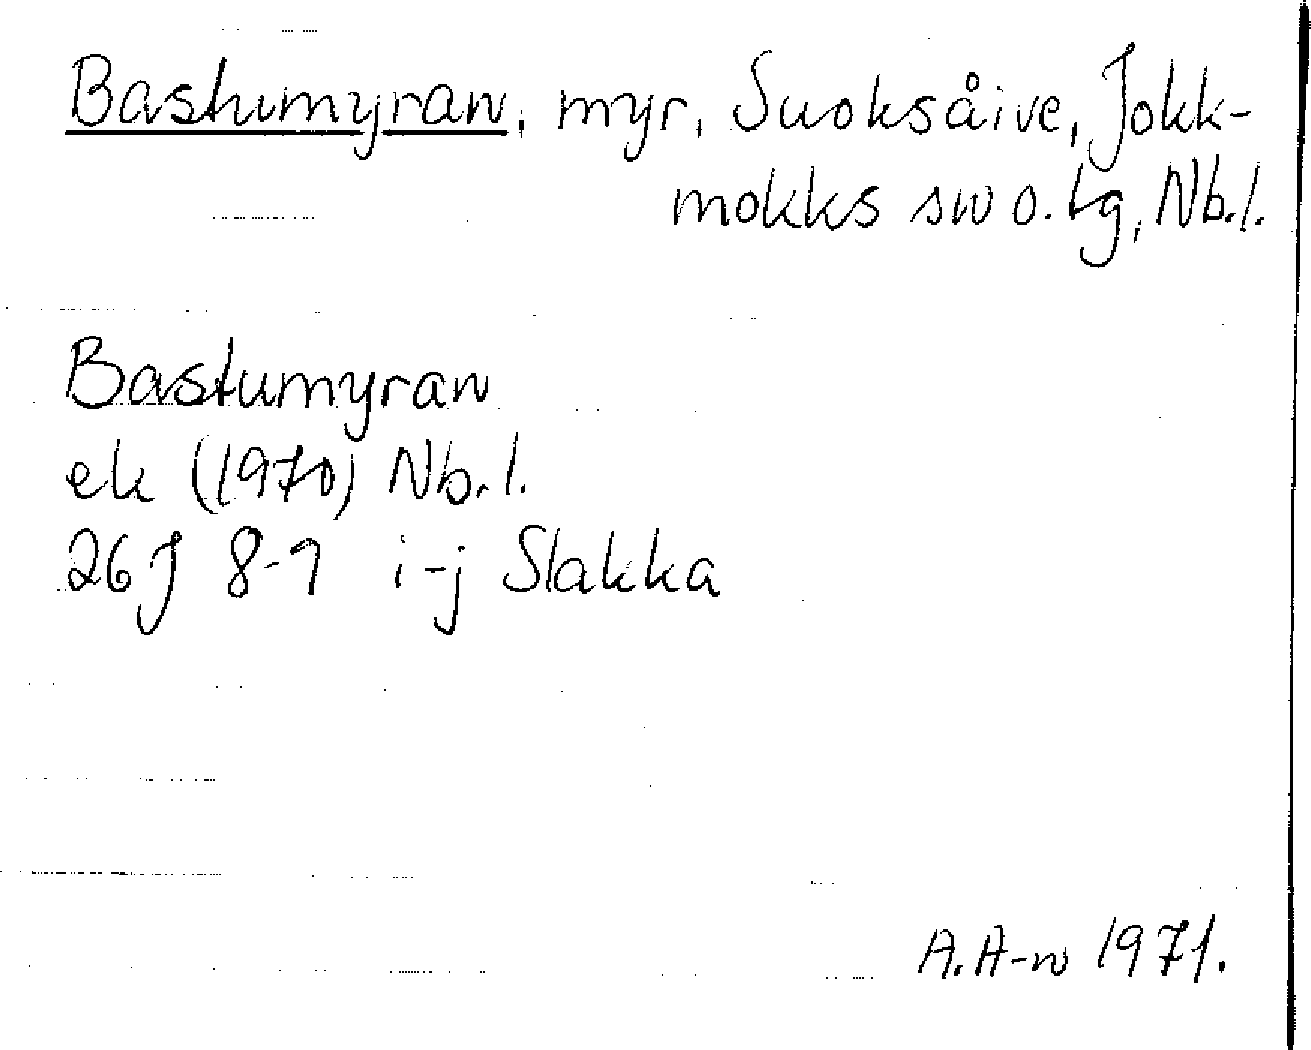 Bastumyran, myr, Suoksåive, Jokk-
mokks sn o. tg, Nb.l.
Bastumyran
ek (1970) Nb.l.
26 J 8-9 i-j Slakka
A.A-n 1971.